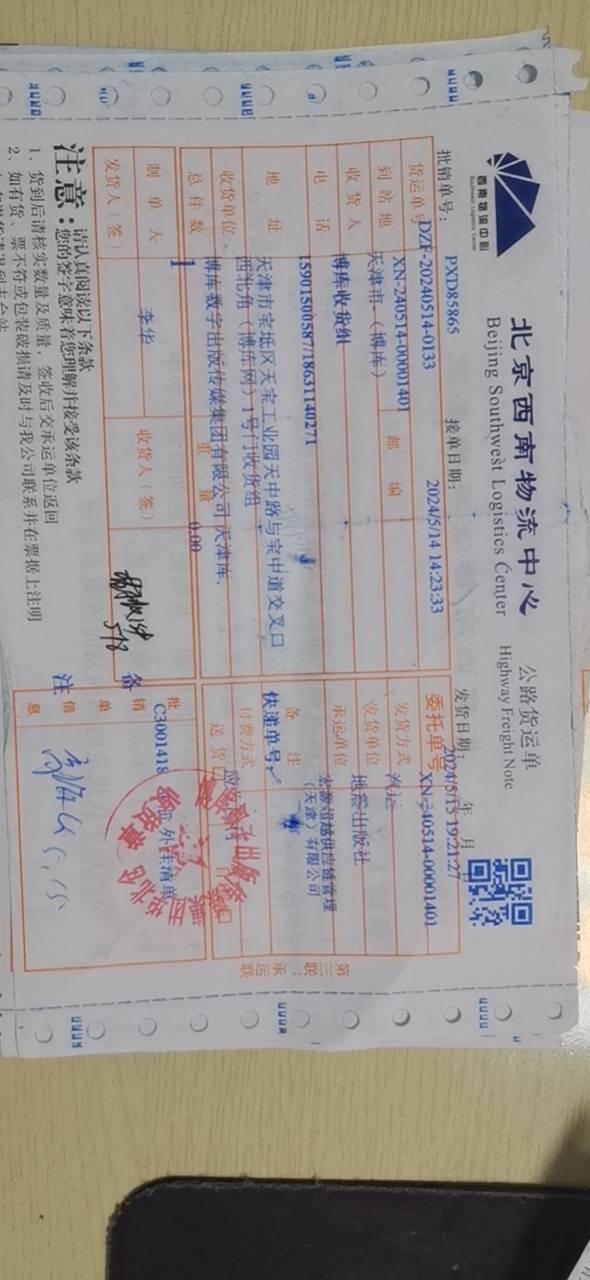 西南物流中心
Southwest Logistics Center
北京西南物流中心
公路货运单
Beijing Southwest Logistics Center
Highway Freight Note
批销单号: PXD85865
接单日期: 2024/5/14 14:23:33
发货日期: 年 月
2024/5/15 19:21:27
货运单号 DZF-20240514-0133
XN-240514-00001401
委托单号 XN-240514-00001401
到站地 天津市 (博库)
邮编
发货方式 汽运
收货人 博库收货组
发货单位 地震出版社
电话 15901500587/18631140271
承运单位
(天津)有限公司
地址 天津市宝坻区天宝工业园天中路与宝中道交叉口
西北角(博库网)1号门收货组
备注 快递单号:
收货单位 博库数字出版传媒集团有限公司 天津库.
付款方式
总件数 1
重量 0.00
送货
制单人 李华
收货人(签)
5/18
发货人(签)
批销单信息 C3001418
外挂清单
备注
第三联:承运联
注意:
请认真阅读以下条款
您的签字意味着您理解并接受该条款
1、货到后请核实数量及质量,签收后交承运单位返回
2、如有货、票不符或包装破损请及时与我公司联系并在票据上注明